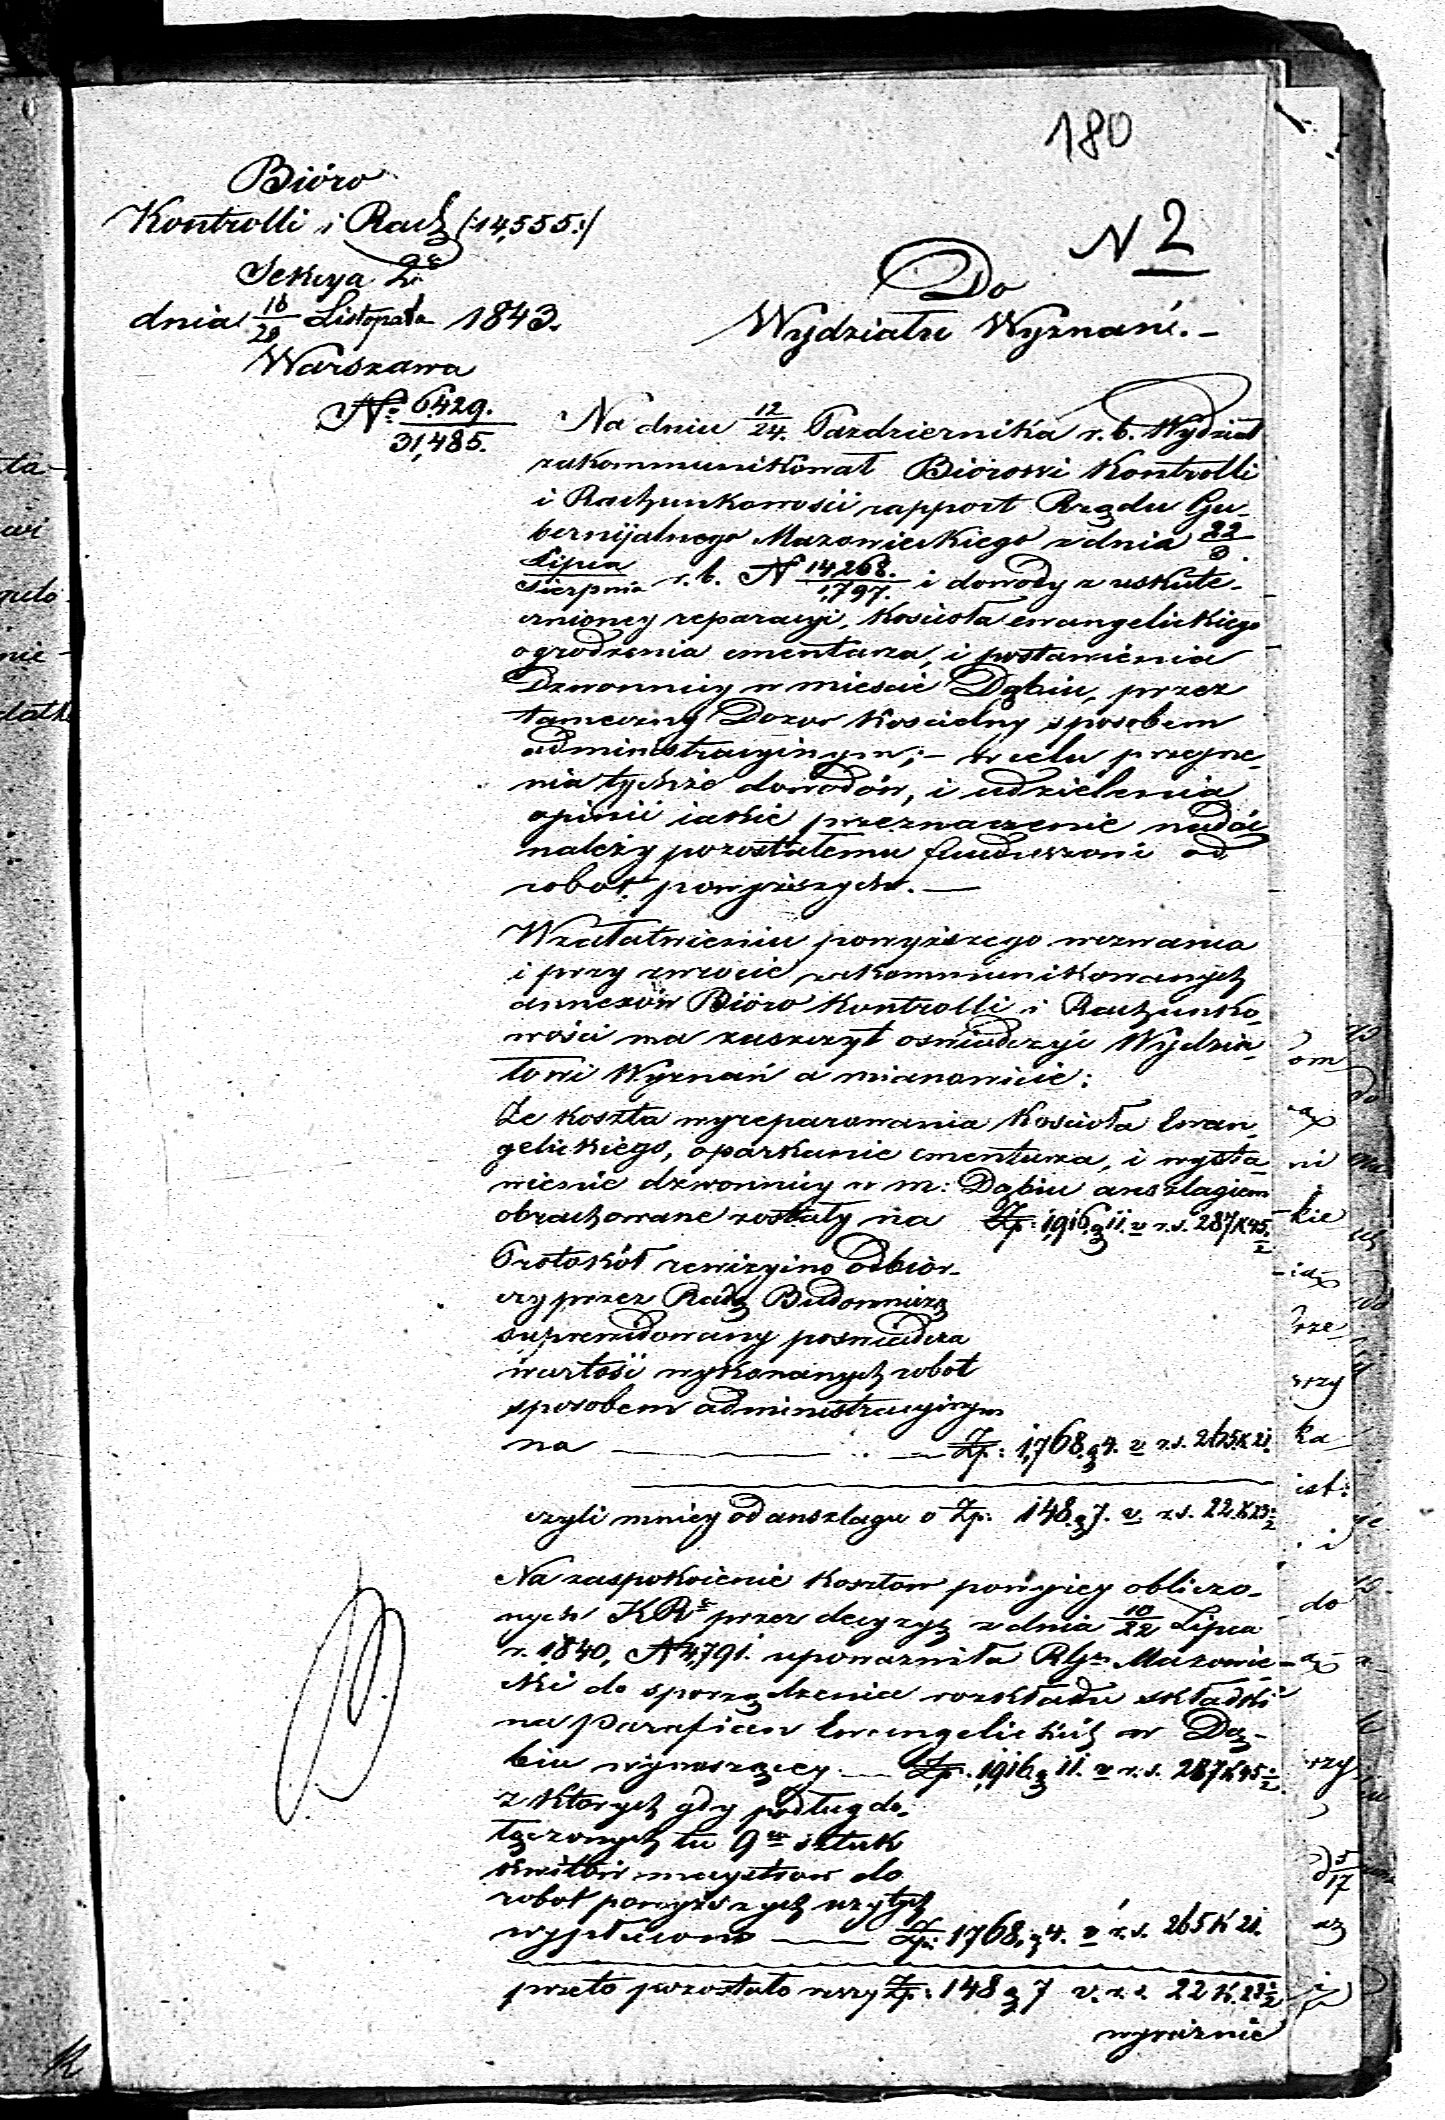 180
Bióro
Kontrolli i Rach (:14,555:)
Sekcya 2ª
dnia 16/28 Listopada 1843.
Warszawa
No. 6429./31,485.
N 2
Do
Wydziału Wyznań. -
Na dniu 12/24. Pazdziernika r. b. Wydział
zakommunikował Biórowi Kontrolli
i Rachunkowości rapport Rządu Gu-
bernijalnego Mazowieckiego z dnia 22/3.
Lipca/Sierpnia r. b. N 14268./1,797. i dowody z uskute-
cznioney reparacyi, Kościoła ewangelickiego
ogrodzenia cmentarza, i postawienia
Dzwonnicy w mieście Dąbiu, przez
tameczny Dozór Kościelny sposobem
administracyjnym; - w celu przeyrze-
nia tychże dowodów, i udzielenia
opinii iakie przeznaczenie nadać
należy pozostałemu funduszowi od
robot powyższych. —
W załatwieniu powyższego wezwania
i przy zwrocie zakommunikowanych
annexów Bióro Kontrolli i Rachunko-
wości ma zaszczyt oświadczyć Wydzia-
łowi Wyznań a mianowicie:
Że koszta wyreparowania Kościoła Ewan-
gelickiego, oparkanie cmentarza, i wysta-
wienie dzwonnicy w m: Dąbiu anszlagiem
obrachowane zostały na Zp: 1,916 g 11. v r. s. 287 K 45 1/2
Protokół rewizyino odbior-
czy przez Radę Budowniczą
superewidowany poswiadcza
wartość wykonanych robot
sposobem administracyjnym
na — Zp: 1,768. g 4. v r. s. 265 K 21.
czyli mniey od anszlagu o Zp: 148. g 7. v. r. s. 22. K 23 1/2
Na zaspokoienie kosztow powyżey obliczo-
nych KR przez decyzyą z dnia 10/22 Lipca
r. 1840, N 4,791. upoważniła RGn Mazowie-
cki do sporządzenia rozkładu składki
na Parafian Ewangelickich w Dą-
biu wynoszącey — Zp. 1,916 g 11. v r. s. 287 K 45 1/2
z ktorych gdy podług do-
łączonych tu 9 sztuk
kwitów maystrow do
robot powyższych użytych
wypłacono — Zp: 1,768, g 4. v r. s. 265 K 21.
przeto pozostało reszty Zp: 148 g 7 v. r. s. 22 K. 23 1/2
wyraznie